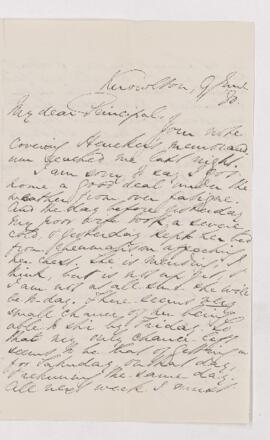 Knowlton, 9 June
80.
My dear Principal,
Your note
covering memorand
um reached me last night.
I am sorry to say I got
home a good deal under the
weather from over fatigue.
And the day before yesterday
my poor wife took a severe
cold & yesterday kept her bed
from rheumatism attacking
her chest. She is mending I
think, but is not up yet &
I am not at all sure she will
be to day. There seems very
small chance of her being
able to stir by Friday. So
that my only chance
seems to be that of getting in
for Saturday on that day,
& returning the same day.
All next week I must